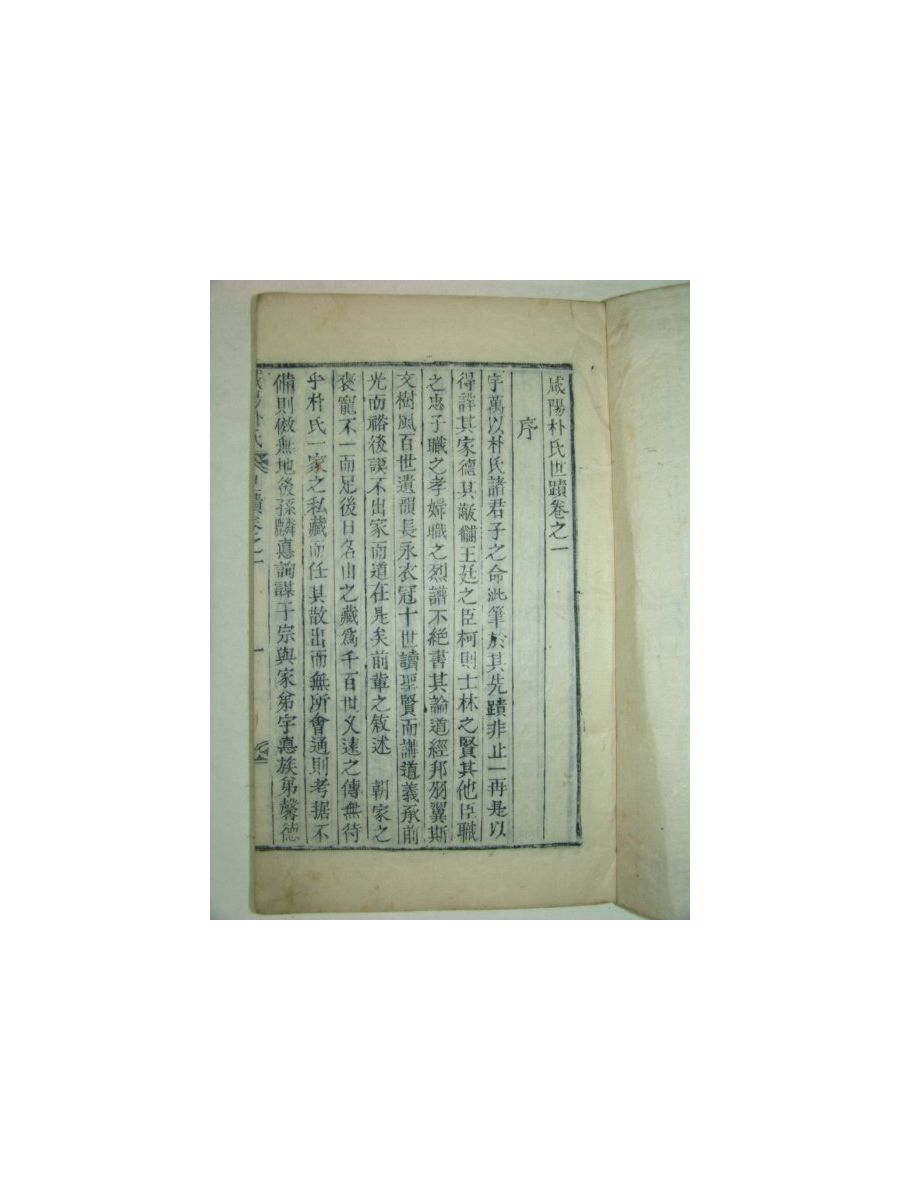 咸陽朴氏世蹟卷之一
序
宇萬以朴氏諸君子之命泚筆於其先蹟非止一再是以
得詳其家德其黻黼王廷之臣柯則士林之賢其他臣職
之忠子職之孝婦職之烈譜不絶書其論道經邦羽翼斯
文樹風百世遺韻長永衣冠十世讀聖賢而講道義承前
光而裕後謨不出家而道在是矣前輩之敘述 朝家之
褒寵不一而足後日名山之藏爲千百世乂遠之傳無待
乎朴氏一家之私藏而任其散出而無所會通則考据不
備則傚無地後孫麟憙詢謀于宗與家弟宇憙族弟馨德
咸陽朴氏世蹟卷之一 一